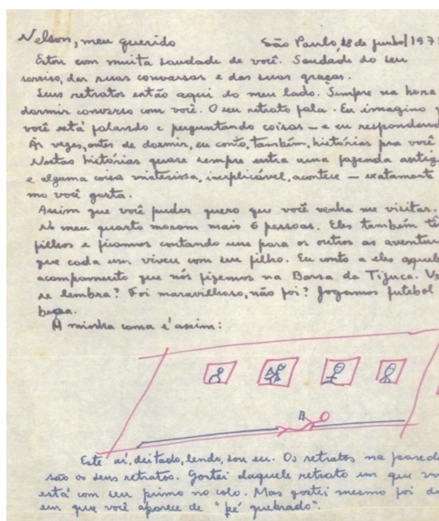 Nelson, meu querido São Paulo, 28 de junho/197
Estou com muita saudade de você. Saudade do seu
sorriso, das suas conversas e das suas graças.
Seus retratos estão aqui do meu lado. Sempre na hora
dormir converso com você. O seu retrato fala. Eu imagino
você está falando e perguntando coisas — e eu respondend
Às vezes, antes de dormir, eu conto, também, histórias pra você
Nestas histórias quase sempre entra uma fazenda antig
e alguma coisa misteriosa, inexplicável, acontece — exatamente
mo você gosta.
Assim que você puder quero que você venha me visitar.
No meu quarto moram mais 6 pessoas. Eles também tê
filhos e ficamos contando uns para os outros as aventur
que cada um viveu com seu filho. Eu conto a eles aquel
acampamento que nós fizemos na Barra da Tijuca. Vo
se lembra? Foi maravilhoso, não foi? Jogamos futebol
beça.
A minha cama é assim:
Este aí, deitado, lendo, sou eu. Os retratos na pared
são os seus retratos. Gostei daquele retrato em que vo
está com seu primo no colo. Mas gostei mesmo foi d
em que você aparece de "pé quebrado".